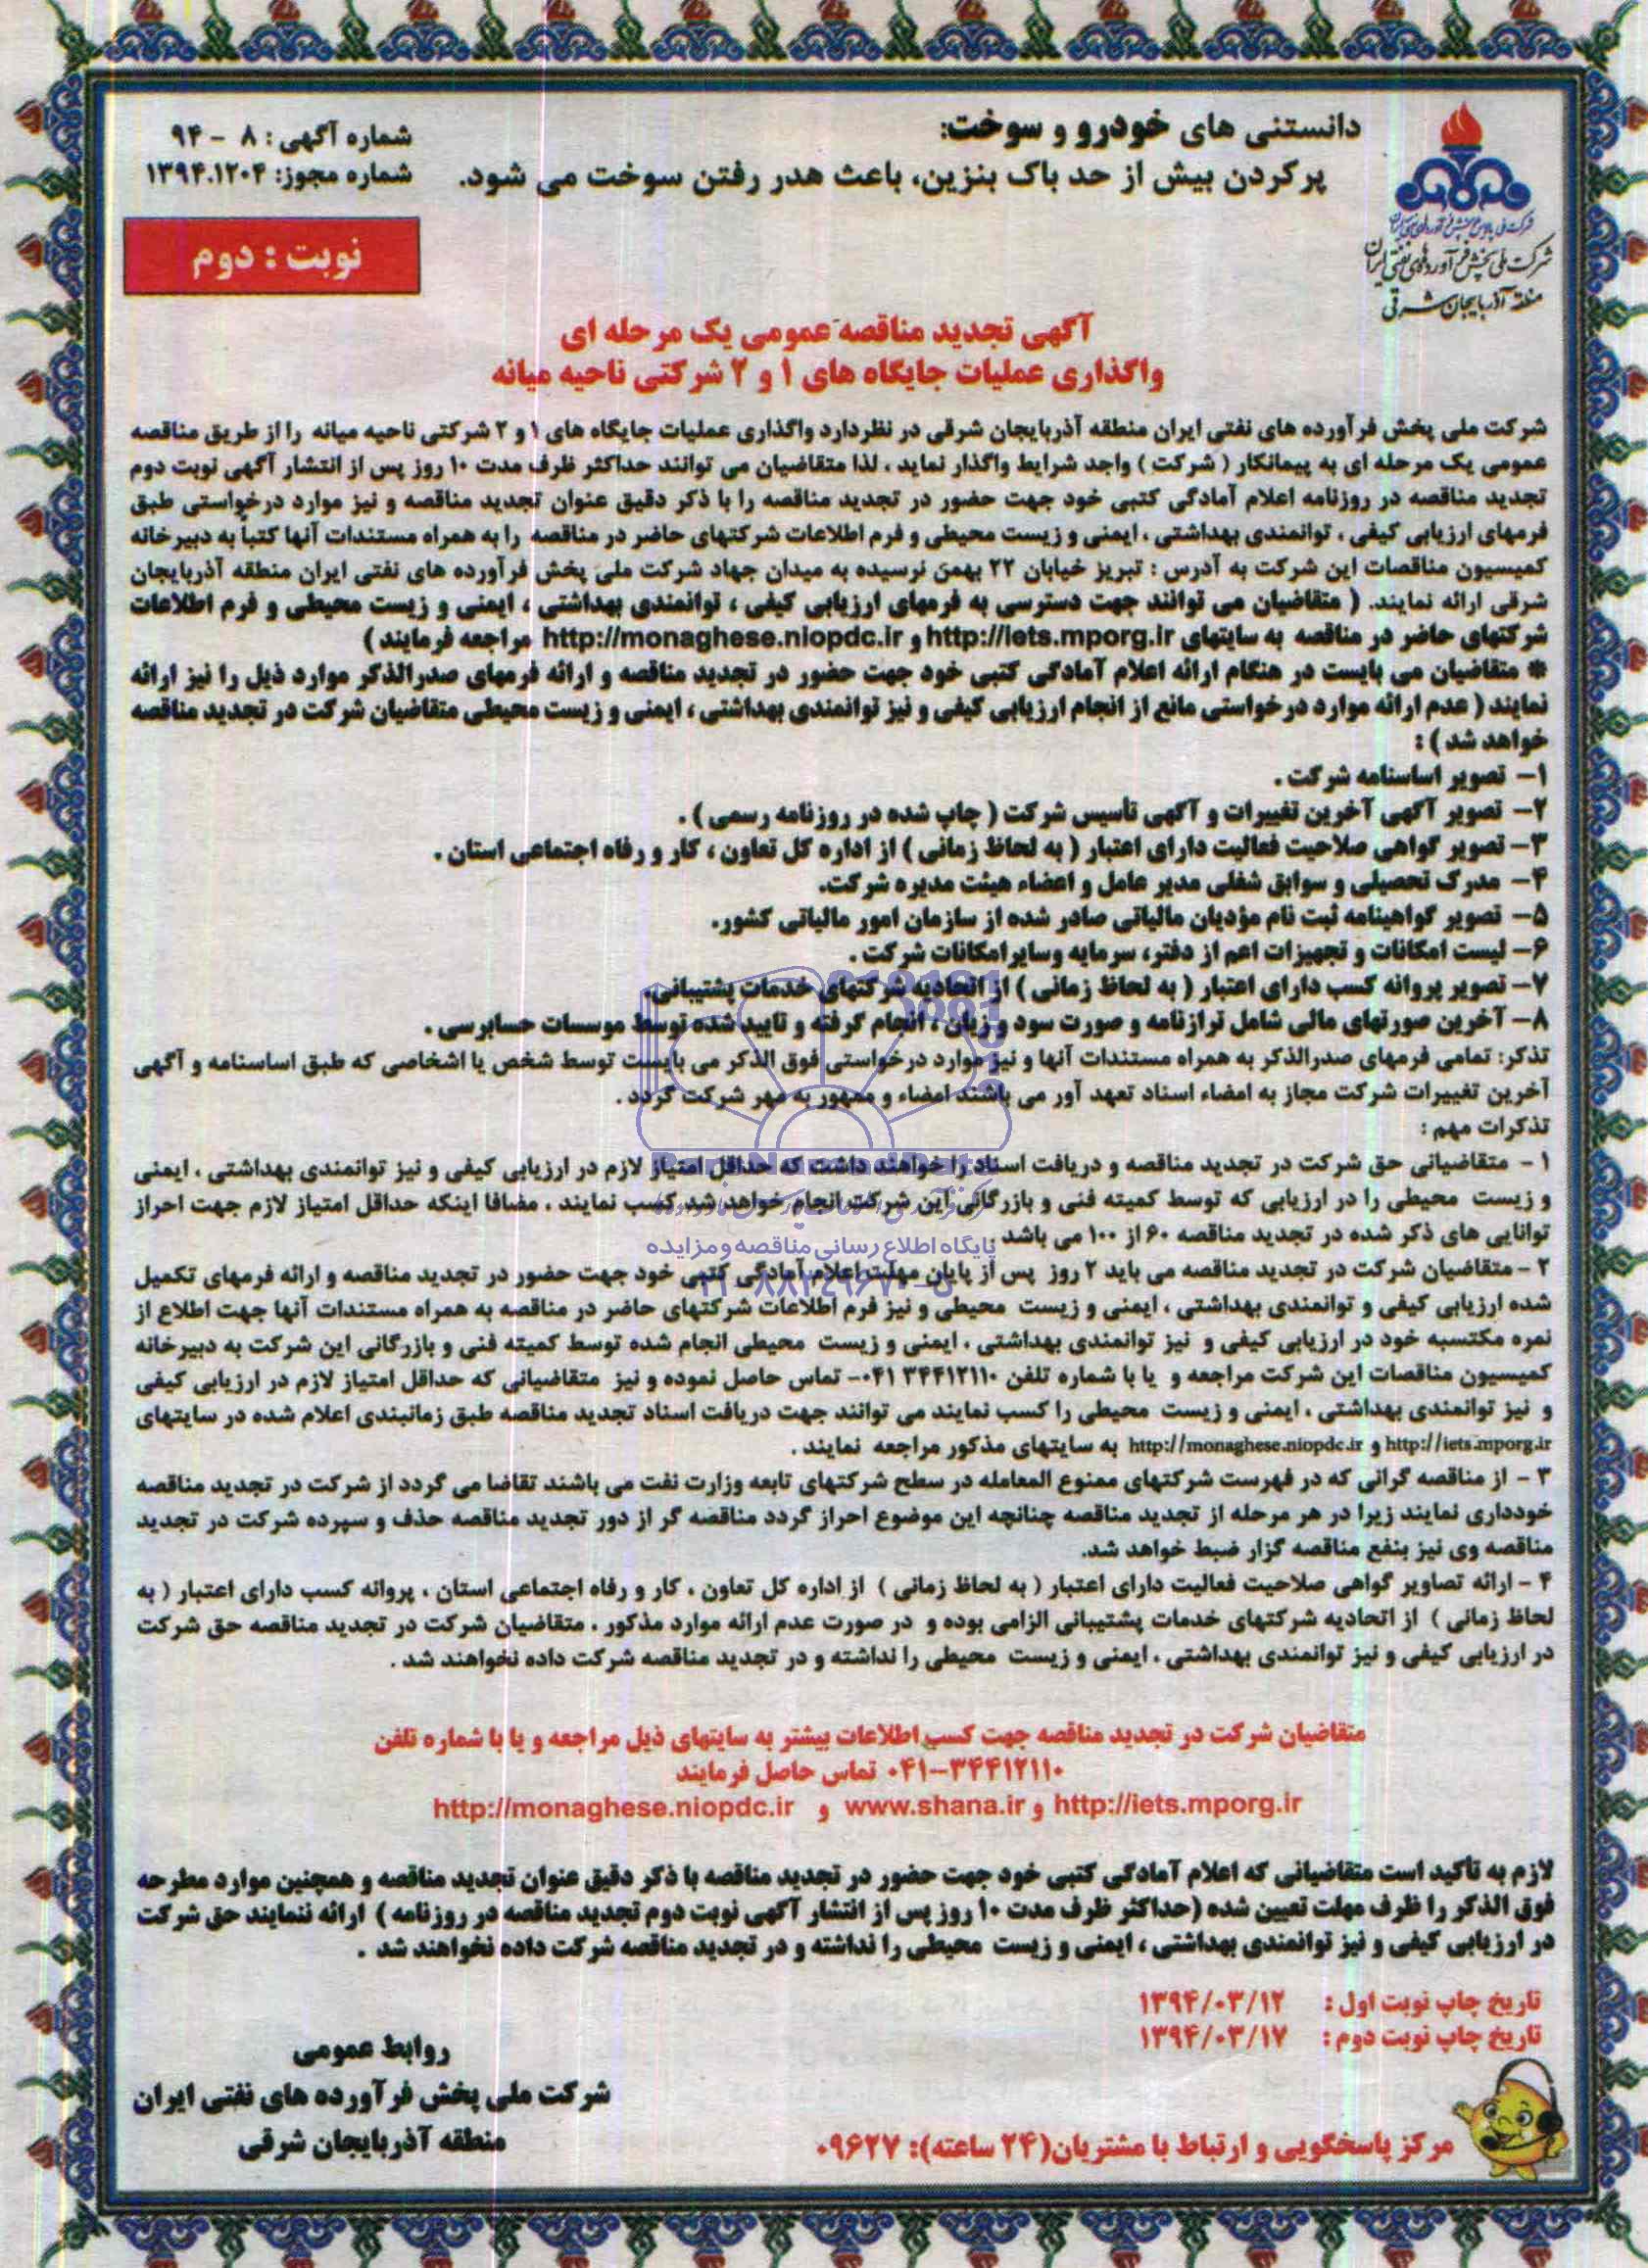 دانستنی های خودرو و سوخت:
پرکردن بیش از حد باک بنزین، باعث هدر رفتن سوخت می شود.
شماره آگهی: ۸ - ۹۴
شماره مجوز: ۱۳۹۴.۱۲۰۴
نوبت : دوم
شرکت ملی پخش فرآورده‌های نفتی ایران
منطقه آذربایجان شرقی
آگهی تجدید مناقصه عمومی یک مرحله ای
واگذاری عملیات جایگاه های ۱ و ۲ شرکتی ناحیه میانه
شرکت ملی پخش فرآورده های نفتی ایران منطقه آذربایجان شرقی در نظردارد واگذاری عملیات جایگاه های ۱ و ۲ شرکتی ناحیه میانه را از طریق مناقصه
عمومی یک مرحله ای به پیمانکار ( شرکت ) واجد شرایط واگذار نماید ، لذا متقاضیان می توانند حداکثر ظرف مدت ۱۰ روز پس از انتشار آگهی نوبت دوم
تجدید مناقصه در روزنامه اعلام آمادگی کتبی خود جهت حضور در تجدید مناقصه را با ذکر دقیق عنوان تجدید مناقصه و نیز موارد درخواستی طبق
فرمهای ارزیابی کیفی ، توانمندی بهداشتی ، ایمنی و زیست محیطی و فرم اطلاعات شرکتهای حاضر در مناقصه را به همراه مستندات آنها کتباً به دبیرخانه
کمیسیون مناقصات این شرکت به آدرس : تبریز خیابان ۲۲ بهمن نرسیده به میدان جهاد شرکت ملی پخش فرآورده های نفتی ایران منطقه آذربایجان
شرقی ارائه نمایند. ( متقاضیان می توانند جهت دسترسی به فرمهای ارزیابی کیفی ، توانمندی بهداشتی ، ایمنی و زیست محیطی و فرم اطلاعات
شرکتهای حاضر در مناقصه به سایتهای http://iets.mporg.ir و http://monaghese.niopdc.ir مراجعه فرمایند )
* متقاضیان می بایست در هنگام ارائه اعلام آمادگی کتبی خود جهت حضور در تجدید مناقصه و ارائه فرمهای صدرالذکر موارد ذیل را نیز ارائه
نمایند ( عدم ارائه موارد درخواستی مانع از انجام ارزیابی کیفی و نیز توانمندی بهداشتی ، ایمنی و زیست محیطی متقاضیان شرکت در تجدید مناقصه
خواهد شد ) :
۱- تصویر اساسنامه شرکت .
۲- تصویر آگهی آخرین تغییرات و آگهی تأسیس شرکت ( چاپ شده در روزنامه رسمی ) .
۳- تصویر گواهی صلاحیت فعالیت دارای اعتبار ( به لحاظ زمانی ) از اداره کل تعاون ، کار و رفاه اجتماعی استان .
۴- مدرک تحصیلی و سوابق شغلی مدیر عامل و اعضاء هیئت مدیره شرکت.
۵- تصویر گواهینامه ثبت نام مؤدیان مالیاتی صادر شده از سازمان امور مالیاتی کشور.
۶- لیست امکانات و تجهیزات اعم از دفتر، سرمایه وسایر امکانات شرکت .
۷- تصویر پروانه کسب دارای اعتبار ( به لحاظ زمانی ) از اتحادیه شرکتهای خدمات پشتیبانی.
۸- آخرین صورتهای مالی شامل ترازنامه و صورت سود و زیان ، انجام گرفته و تایید شده توسط موسسات حسابرسی .
تذکر: تمامی فرمهای صدرالذکر به همراه مستندات آنها و نیز موارد درخواستی فوق الذکر می بایست توسط شخص یا اشخاصی که طبق اساسنامه و آگهی
آخرین تغییرات شرکت مجاز به امضاء اسناد تعهد آور می باشند امضاء و ممهور به مهر شرکت گردد .
تذکرات مهم :
۱ - متقاضیانی حق شرکت در تجدید مناقصه و دریافت اسناد را خواهند داشت که حداقل امتیاز لازم در ارزیابی کیفی و نیز توانمندی بهداشتی ، ایمنی
و زیست محیطی را در ارزیابی که توسط کمیته فنی و بازرگانی این شرکت انجام خواهد شد کسب نمایند ، مضافا اینکه حداقل امتیاز لازم جهت احراز
توانایی های ذکر شده در تجدید مناقصه ۶۰ از ۱۰۰ می باشد
پایگاه اطلاع رسانی مناقصه و مزایده
۲ - متقاضیان شرکت در تجدید مناقصه می باید ۲ روز پس از پایان مهلت اعلام آمادگی کتبی خود جهت حضور در تجدید مناقصه و ارائه فرمهای تکمیل
شده ارزیابی کیفی و توانمندی بهداشتی ، ایمنی و زیست محیطی و نیز فرم اطلاعات شرکتهای حاضر در مناقصه به همراه مستندات آنها جهت اطلاع از
نمره مکتسبه خود در ارزیابی کیفی و نیز توانمندی بهداشتی ، ایمنی و زیست محیطی انجام شده توسط کمیته فنی و بازرگانی این شرکت به دبیرخانه
کمیسیون مناقصات این شرکت مراجعه و یا با شماره تلفن ۳۴۴۱۲۱۱۰ ۰۴۱- تماس حاصل نموده و نیز متقاضیانی که حداقل امتیاز لازم در ارزیابی کیفی
و نیز توانمندی بهداشتی ، ایمنی و زیست محیطی را کسب نمایند می توانند جهت دریافت اسناد تجدید مناقصه طبق زمانبندی اعلام شده در سایتهای
http://iets.mporg.ir و http://monaghese.niopdc.ir به سایتهای مذکور مراجعه نمایند .
۳ - از مناقصه گرانی که در فهرست شرکتهای ممنوع المعامله در سطح شرکتهای تابعه وزارت نفت می باشند تقاضا می گردد از شرکت در تجدید مناقصه
خودداری نمایند زیرا در هر مرحله از تجدید مناقصه چنانچه این موضوع احراز گردد مناقصه گر از دور تجدید مناقصه حذف و سپرده شرکت در تجدید
مناقصه وی نیز بنفع مناقصه گزار ضبط خواهد شد.
۴ - ارائه تصاویر گواهی صلاحیت فعالیت دارای اعتبار ( به لحاظ زمانی ) از اداره کل تعاون ، کار و رفاه اجتماعی استان ، پروانه کسب دارای اعتبار ( به
لحاظ زمانی ) از اتحادیه شرکتهای خدمات پشتیبانی الزامی بوده و در صورت عدم ارائه موارد مذکور ، متقاضیان شرکت در تجدید مناقصه حق شرکت
در ارزیابی کیفی و نیز توانمندی بهداشتی ، ایمنی و زیست محیطی را نداشته و در تجدید مناقصه شرکت داده نخواهند شد .
متقاضیان شرکت در تجدید مناقصه جهت کسب اطلاعات بیشتر به سایتهای ذیل مراجعه و یا با شماره تلفن
۰۴۱-۳۴۴۱۲۱۱۰ تماس حاصل فرمایند
http://iets.mporg.ir و www.shana.ir و http://monaghese.niopdc.ir
لازم به تأکید است متقاضیانی که اعلام آمادگی کتبی خود جهت حضور در تجدید مناقصه با ذکر دقیق عنوان تجدید مناقصه و همچنین موارد مطرحه
فوق الذکر را ظرف مهلت تعیین شده (حداکثر ظرف مدت ۱۰ روز پس از انتشار آگهی نوبت دوم تجدید مناقصه در روزنامه ) ارائه ننمایند حق شرکت
در ارزیابی کیفی و نیز توانمندی بهداشتی ، ایمنی و زیست محیطی را نداشته و در تجدید مناقصه شرکت داده نخواهند شد .
تاریخ چاپ نوبت اول : ۱۳۹۴/۰۳/۱۲
تاریخ چاپ نوبت دوم : ۱۳۹۴/۰۳/۱۷
روابط عمومی
شرکت ملی پخش فرآورده های نفتی ایران
منطقه آذربایجان شرقی
مرکز پاسخگویی و ارتباط با مشتریان(۲۴ ساعته): ۰۹۶۲۷